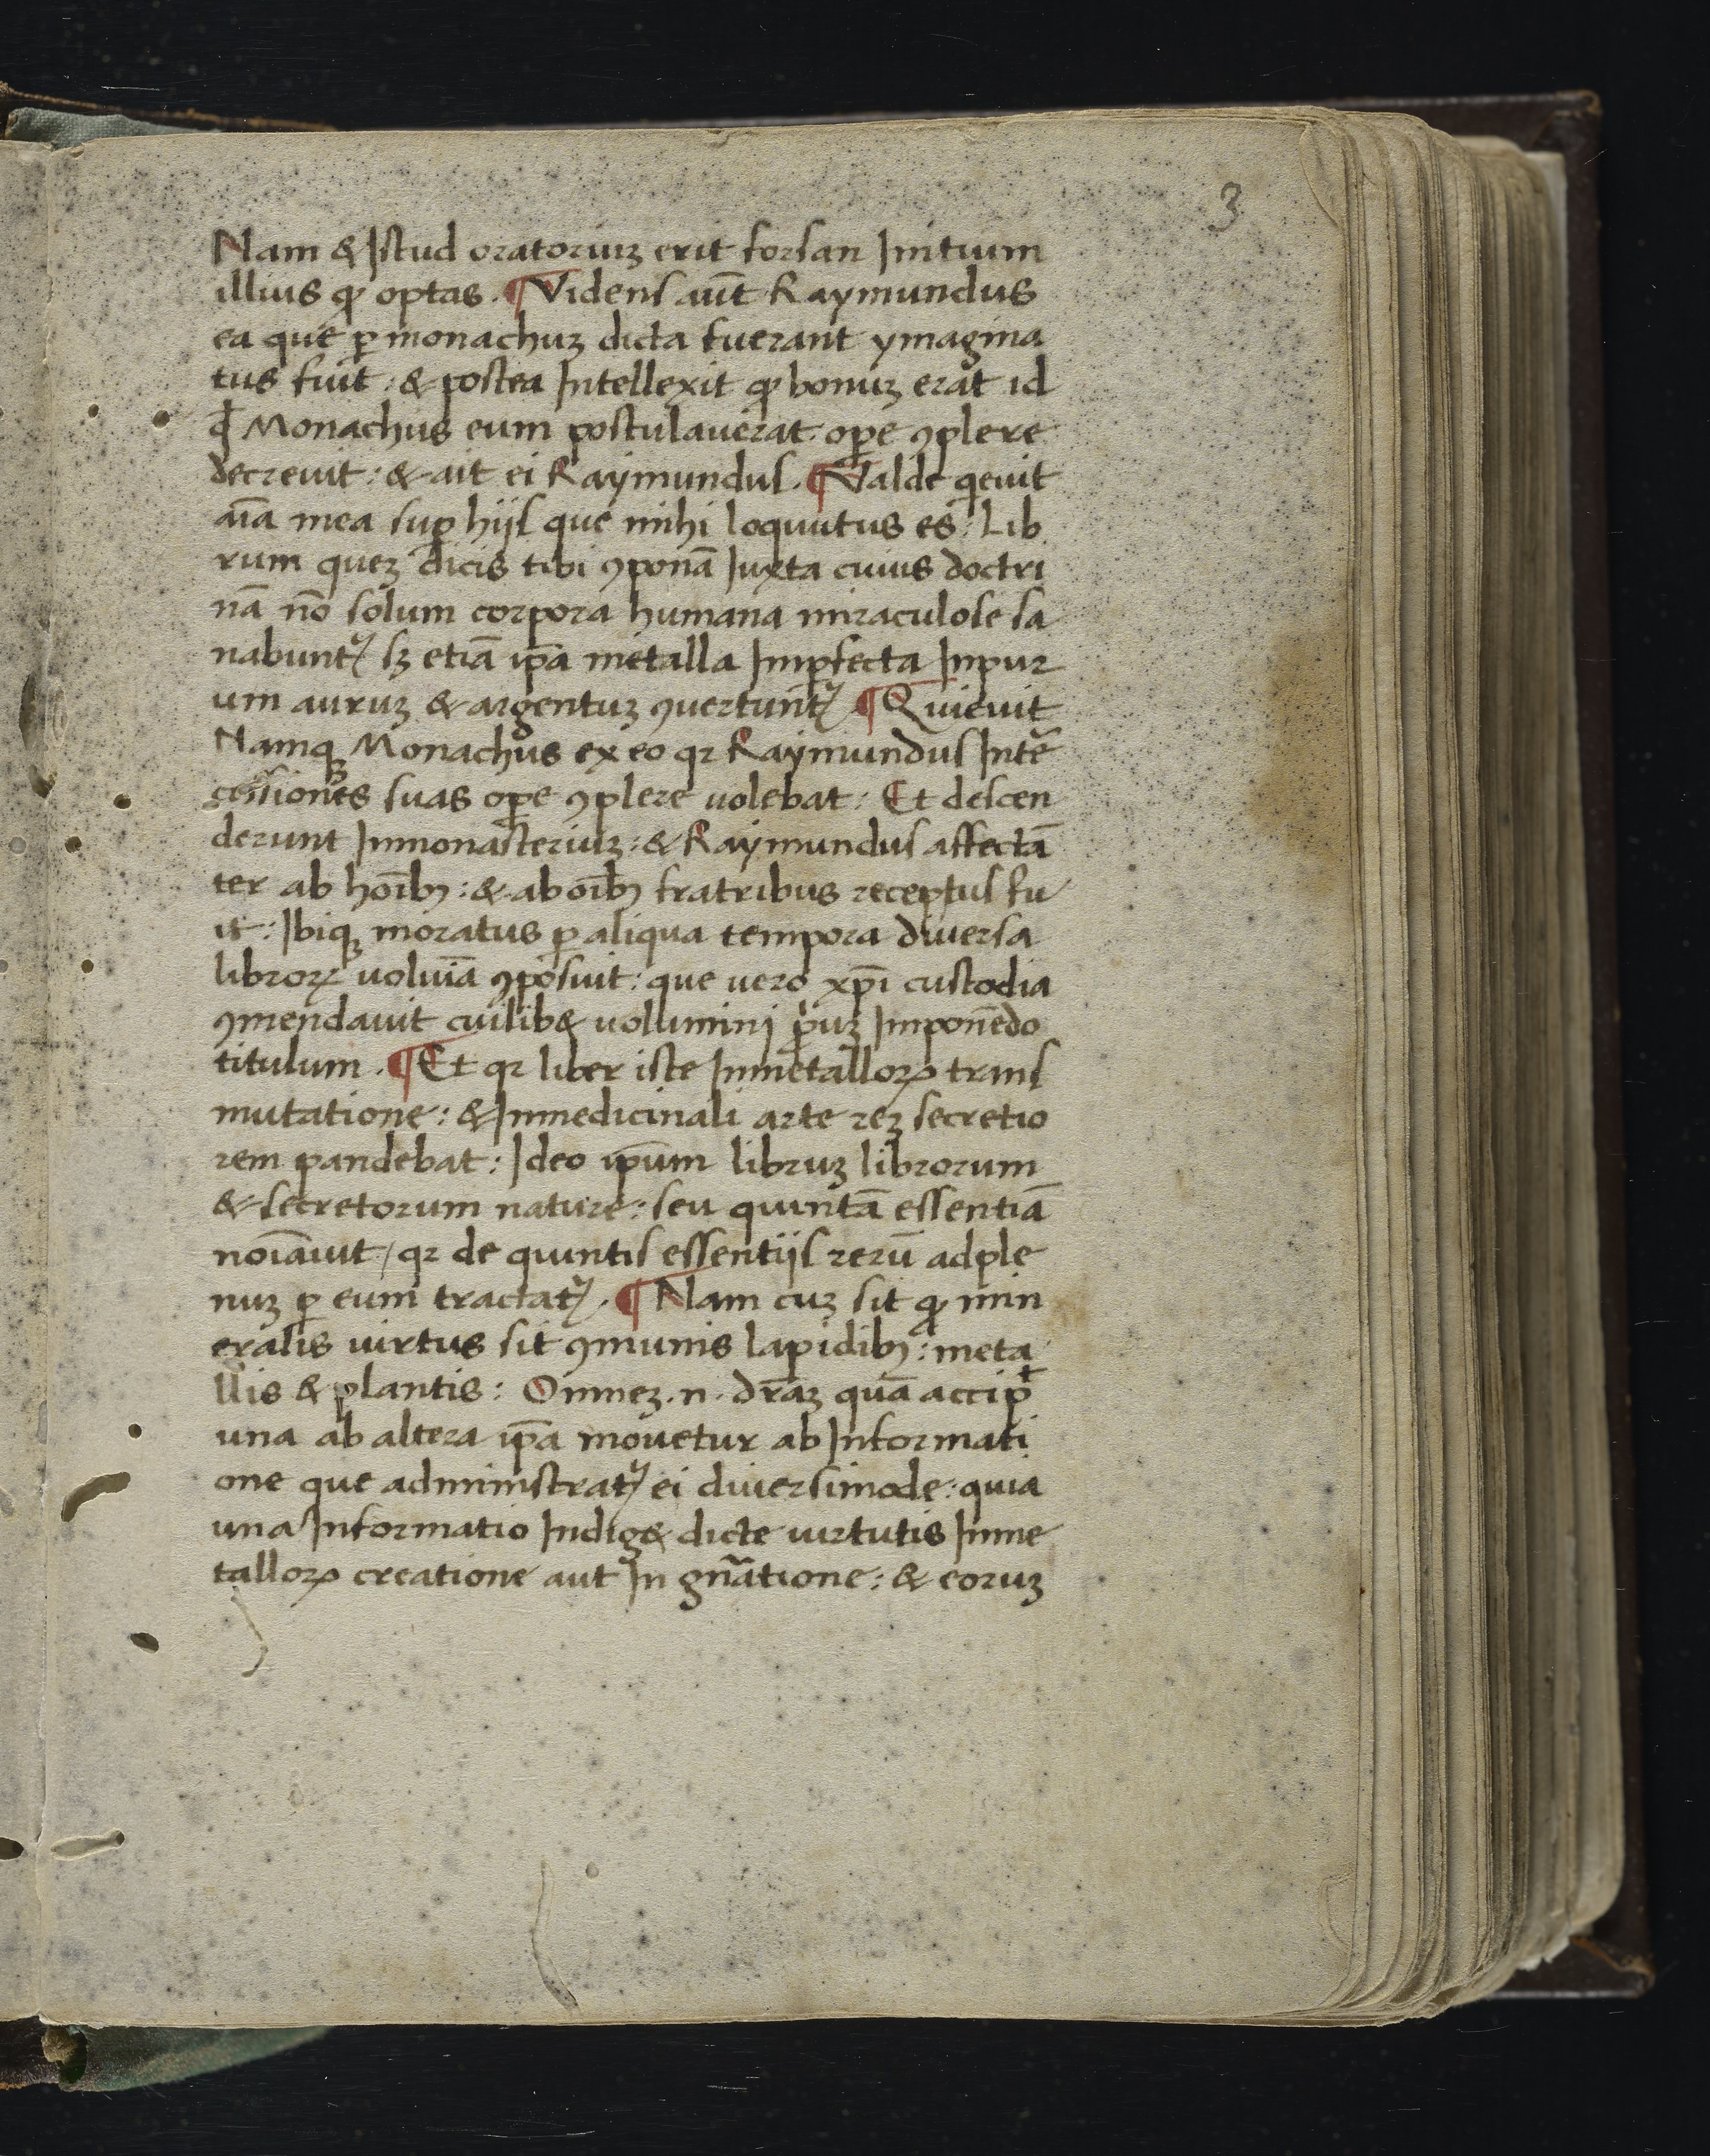 3
Nam & Istud oratoriuꝫ erit forsan Initium
illius ꝙ optas. ¶ Videns aut̄ Raymundus
ea que ꝑ monachuꝫ dicta fuerant ymagina
tus fuit: & postea Intellexit ꝙ bonuꝫ erat id
qđ Monachus eum postulauerat oꝑe ꝯplere
decreuit: & ait ei Raymundus. ¶ Valde qieuit
aīa mea suꝑ hijs que mihi loquutus es: Lib
rum queꝫ dicis tibi ꝯponā Iuxta cuius doctri
nā nō solum corpora humana miraculose sa
nabuntᷣ sꝫ etiā ip̄a metalla Imꝑfecta Inpur
um auruꝫ & argentuꝫ ꝯuertuntᷣ ¶ Quieuit
Namqꝫ Monachus ex eo qꝛ Raymundus Intē
cessiones suas oꝑe ꝯplere uolebat: Et descen
derunt Inmonasteriuꝫ: & Raymundus affectā
ter ab hoībꝫ: & ab oībꝫ fratribus receptus fu
it: Ibiqꝫ moratus ꝑ aliqua tempora diuersa
libroꝝ voluīa ꝯposuit: que vero xp̄i custodia
ꝯmendauit cuilib& uollumini ꝓiuꝫ Imponēdo
titulum. ¶ Et qꝛ liber iste Inmetalloꝝ trans
mutatione: & Inmedicinali arte reꝫ secretio
rem pandebat: Ideo ip̄um libruꝫ librorum
& secretorum nature: seu quintā essentiā
noīauit / qꝛ de quintis essentijs rerū adple
nuꝫ ꝑ eum tractatᷣ. ¶ Nam cuꝫ sit ꝙ min
eralis virtus sit ꝯmunis lapidibꝫ: meta
llis & plantis: Omneꝫ .n. dr̄aꝫ quā accip̄t
una ab altera ip̄a mouetur ab Informati
one que administratᷣ ei diuersimode: quia
una Informatio Indig& dicte uirtutis Inme
talloꝝ creatione aut In gn̄atione: & eoruꝫ